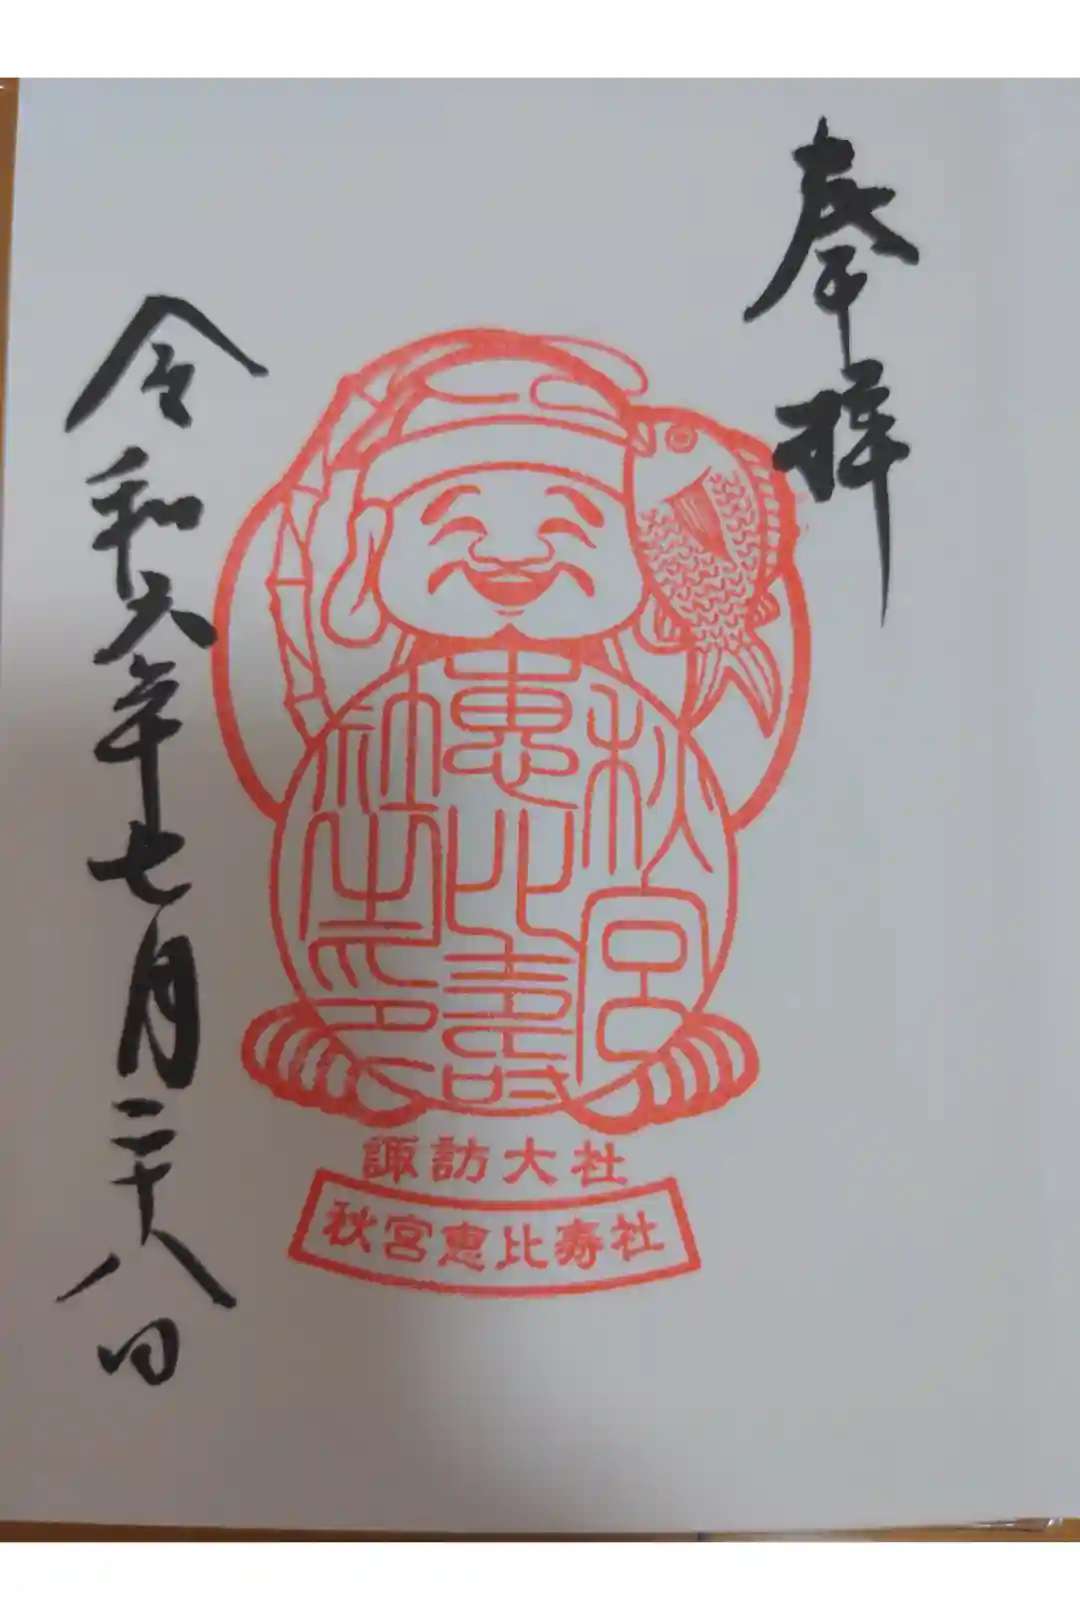 奉拝
秋宮
恵比寿
社之印
令和六年七月二十八日
諏訪大社
秋宮恵比寿社